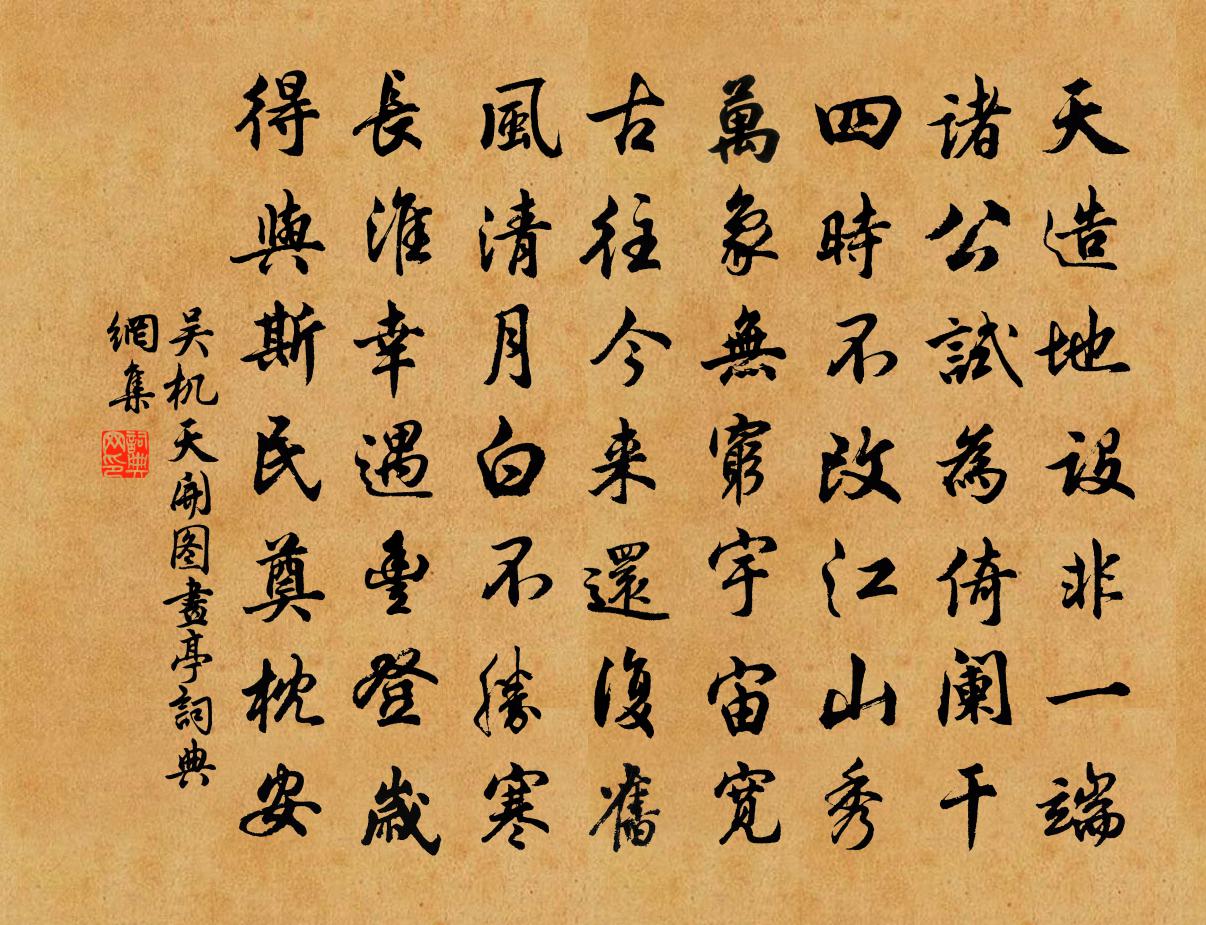 天造地設非一端
諸公試為倚阑干
四時不改江山秀
萬象無窮宇宙寬
古往今来還復舊
風清月白不勝寒
長淮幸遇豐登歲
得與斯民奠枕安
吴机天開图畫亭詞典
網集
詞典
网印